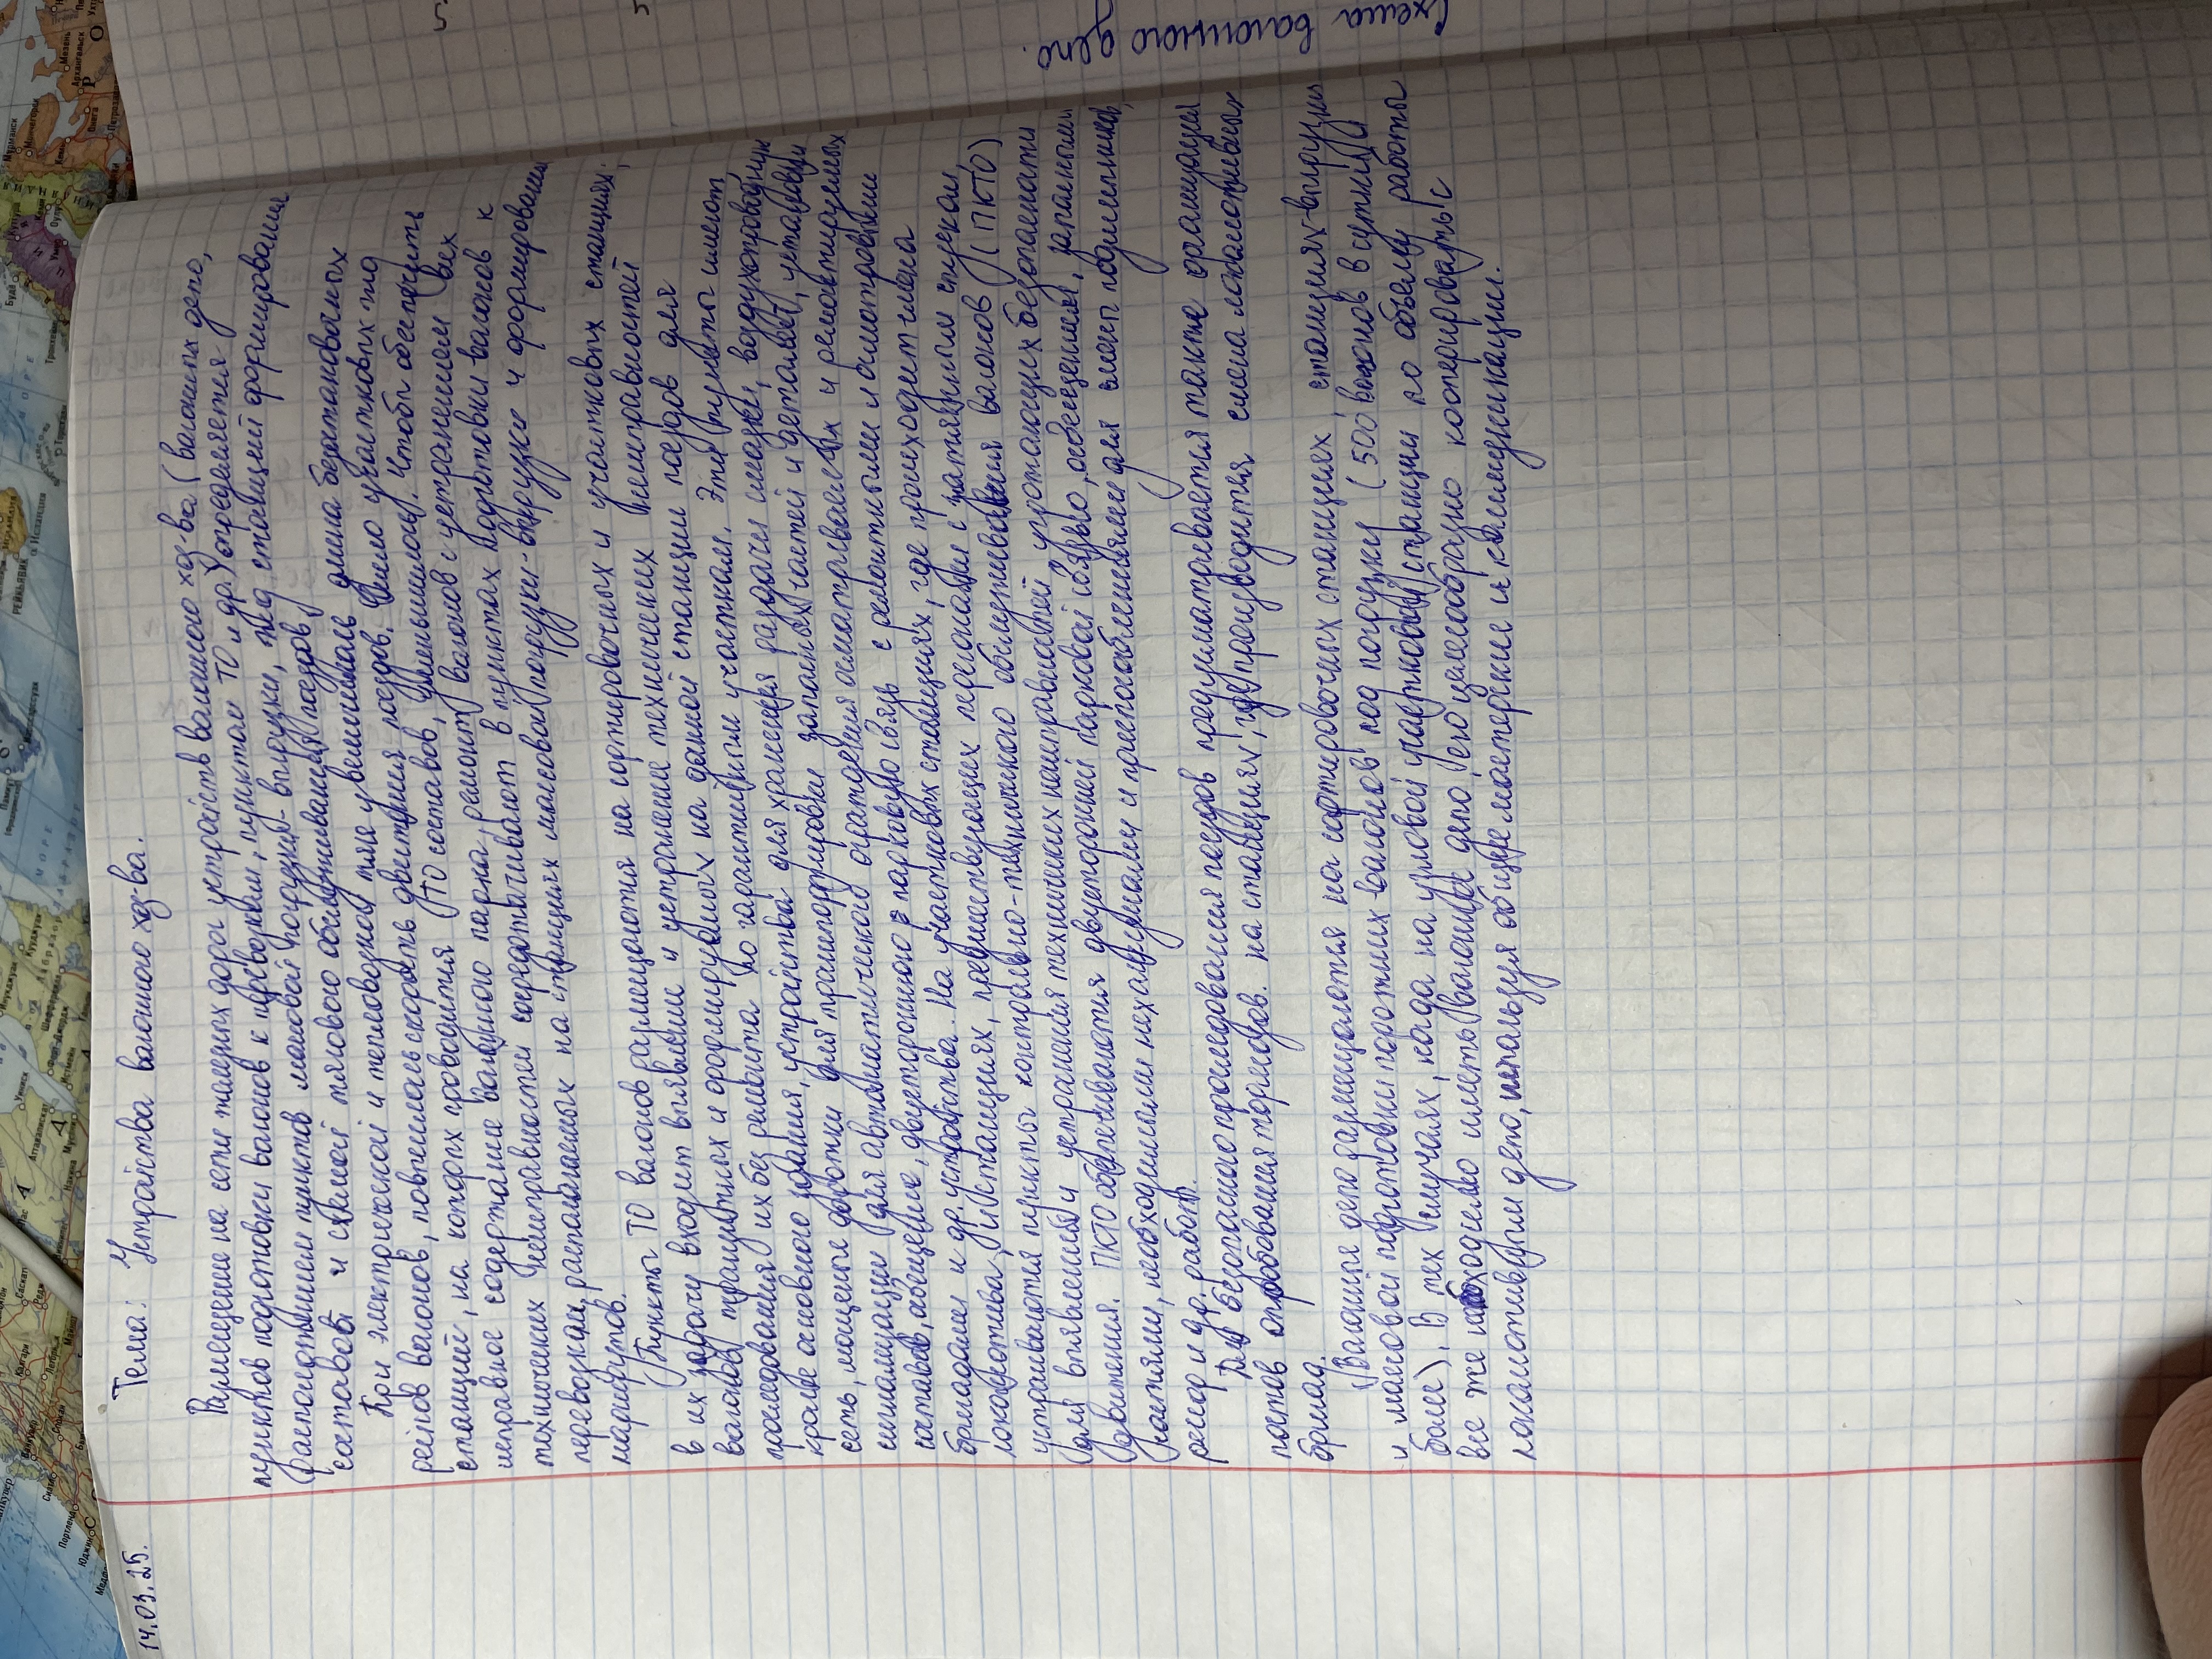 14.03.25.
Тема: Устройства вагонного хоз-ва.
Размещение на сети железных дорог устройств вагонного хоз-ва (вагонных депо,
пунктов подготовки вагонов к перевозкам, пунктов ТО и др.) определяется
расположением пунктов массовой погрузки-выгрузки, станций формирования
составов и схемой тягового обслуживания поездов.
При электрической и тепловозной тяге увеличилась длина безостановочных
рейсов вагонов, повысилась скорость движения поездов. Число участковых
станций, на которых проводится ТО составов, уменьшилось. Чтобы обеспечить
исправное содержание вагонного парка, ремонт вагонов с устранением всех
технических неисправностей сосредотачивают в пунктах подготовки вагонов к
перевозкам, расположенных на станциях массовой погрузки-выгрузки и формирования
маршрутов.
Пункты ТО вагонов размещаются на сортировочных и участковых станциях;
в их задачу входит выявление и устранение технических неисправностей
вагонов транзитных и формируемых на данной станции поездов для
проследования их без ремонта по гарантийным участкам. Эти пункты имеют
кроме основного здания, устройства для хранения раздачи смазки, воздухопроводную
сеть, мощеные дорожки для транспортировки запасных частей и деталей, установки
сигнализации для автоматического ограждения осматриваемых и ремонтируемых
составов, освещение, двустороннюю парковую связь с ремонтными и осмотровыми
бригадами и др. устройства. На участковых станциях, где происходит смена
локомотива, и станциях, предшествующих перегонам с затяжным спуском,
устраиваются пункты контрольно-технического обслуживания вагонов (ПКТО)
для выявления и устранения технических неисправностей, угрожающих безопасности
движения. ПКТО обеспечиваются двусторонней парковой связью, освещением, запасными
частями, необходимыми механизмами и приспособлениями для смены подшипников,
рессор и др. работ.
Для безопасного проследования поездов предусматривается также организация
постов опробования тормозов на станциях, где производится смена локомотивных
бригад.
Вагонные депо размещаются на сортировочных станциях, станциях выгрузки
и массовой подготовки порожних вагонов под погрузку (500 вагонов в сутки и
более). В тех случаях, когда на узловой участковой станции по объему работы
все же необходимо иметь вагонное депо, его целесообразно кооперировать с
локомотивным депо, используя общие мастерские и коммуникации.
Схема вагонного депо.